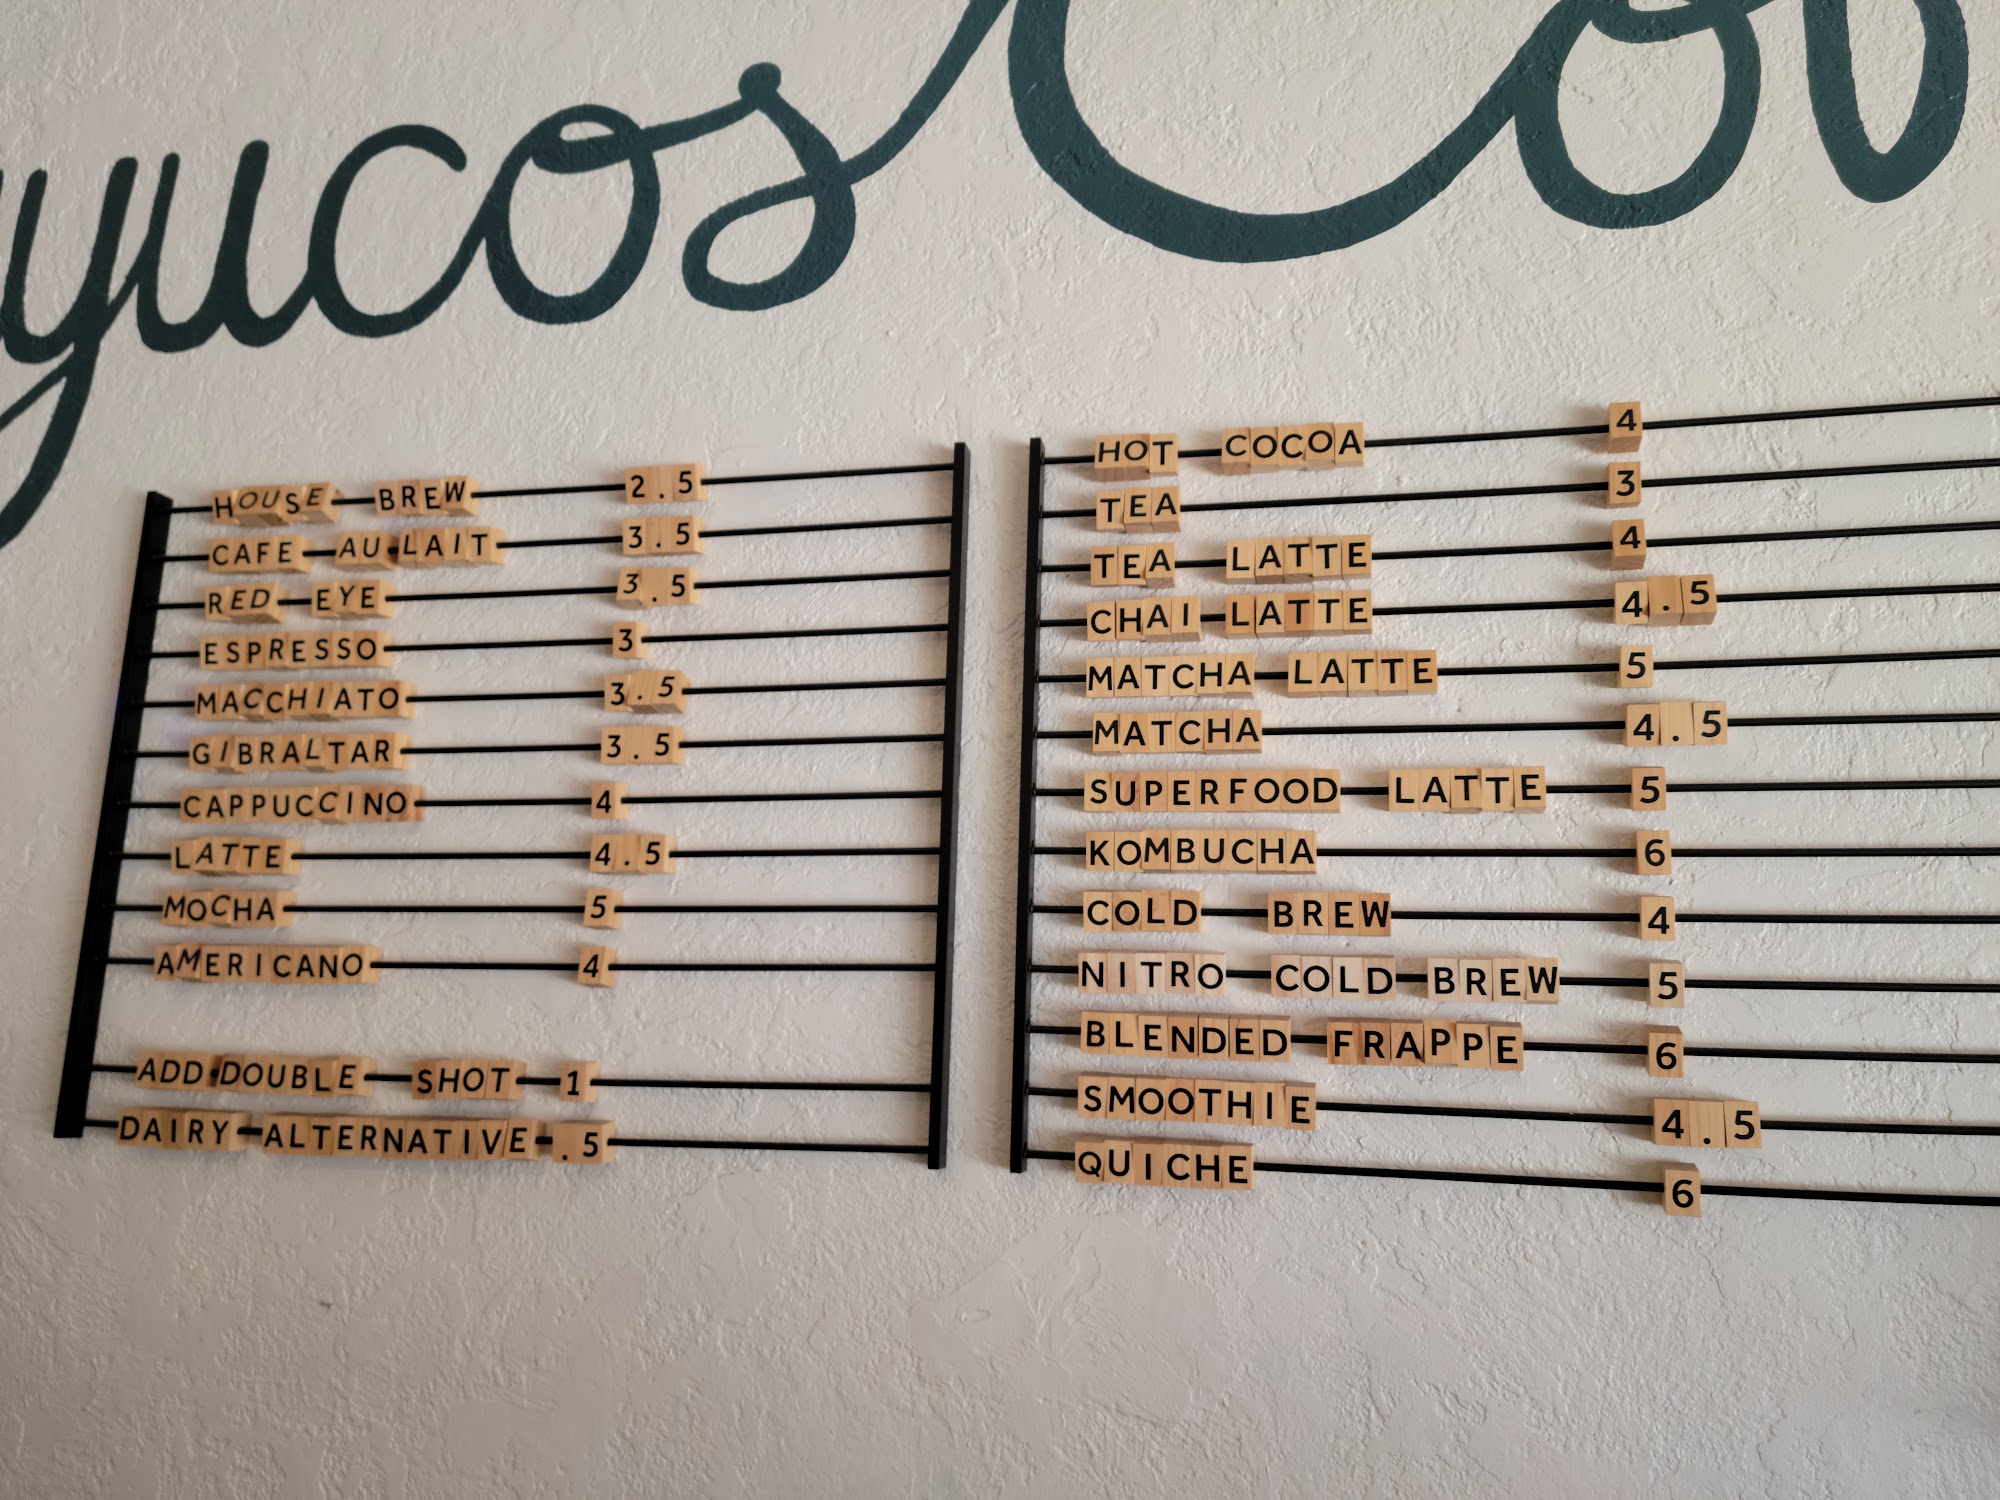 yucos Co
HOUSE BREW 2.5
CAFE AU LAIT 3.5
RED EYE 3.5
ESPRESSO 3
MACCHIATO 3.5
GIBRALTAR 3.5
CAPPUCCINO 4
LATTE 4.5
MOCHA 5
AMERICANO 4
ADD DOUBLE SHOT 1
DAIRY ALTERNATIVE .5
HOT COCOA 4
TEA 3
TEA LATTE 4
CHAI LATTE 4.5
MATCHA LATTE 5
MATCHA 4.5
SUPERFOOD LATTE 5
KOMBUCHA 6
COLD BREW 4
NITRO COLD BREW 5
BLENDED FRAPPE 6
SMOOTHIE 4.5
QUICHE 6